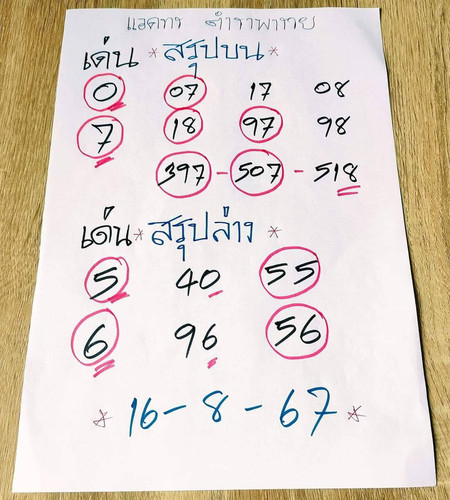 แอดทร ตำราพาทย
เด่น * สรุปบน *
0 07 17 08
7 18 97 98
397 - 507 - 518
เด่น * สรุปล่าง *
5 40 55
6 96 56
* 16 - 8 - 67 *